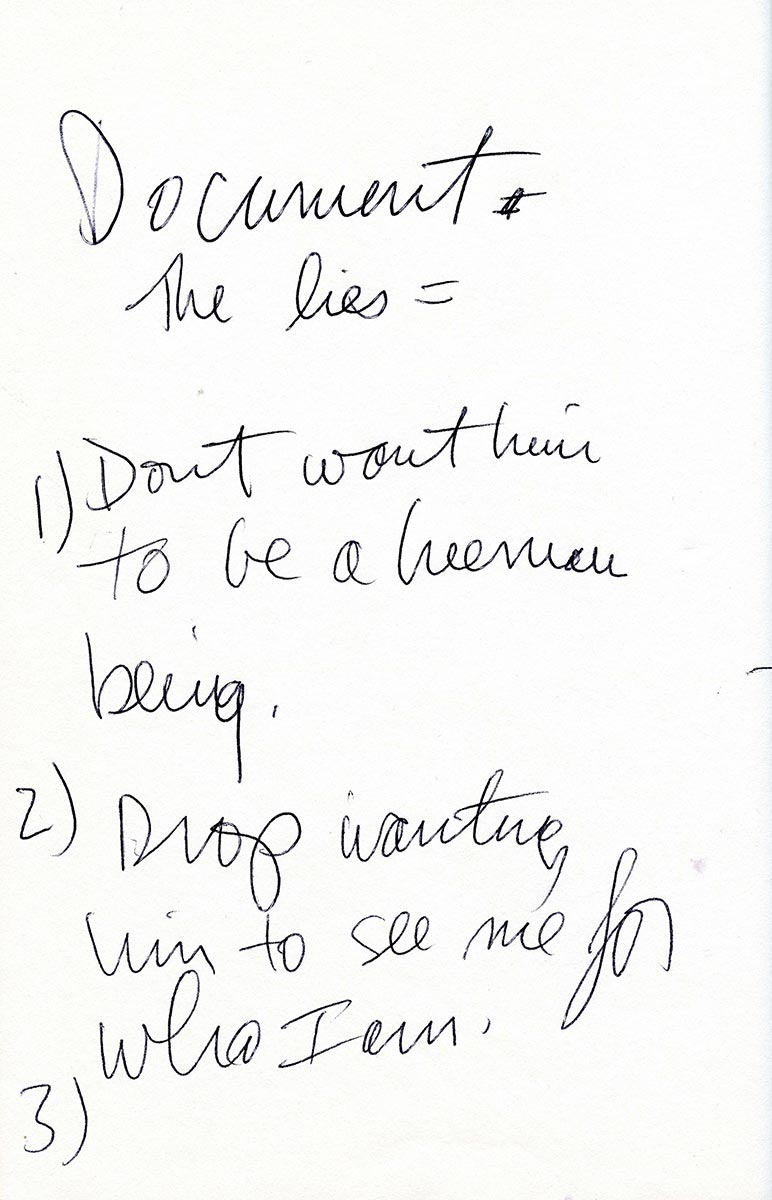 Document
the lies =
1) Dont want him
to be a human
being.
2) Drop wanting
him to see me for
who I am.
3)